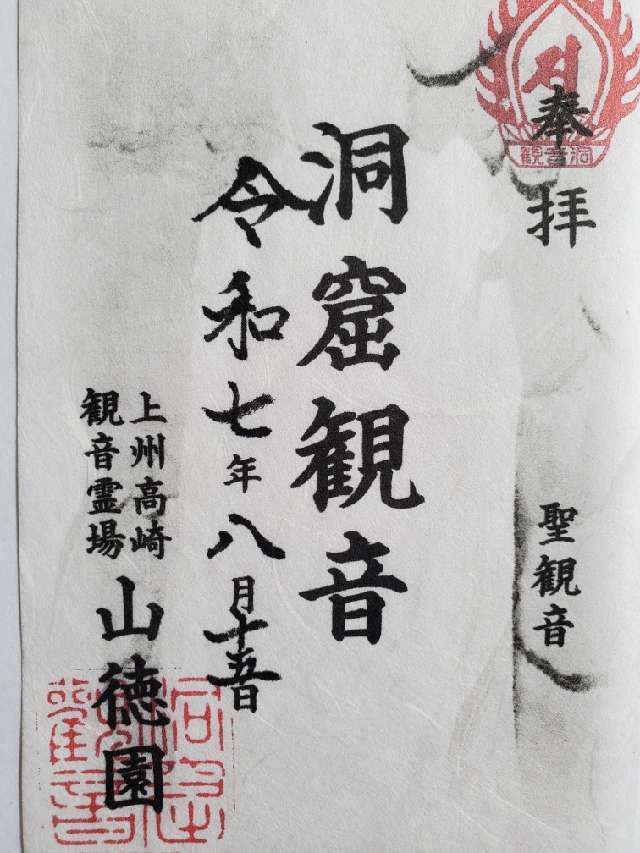 奉拝
洞窟観音
聖観音
洞窟観音
令和七年八月十五日
上州高崎
観音霊場
山徳園